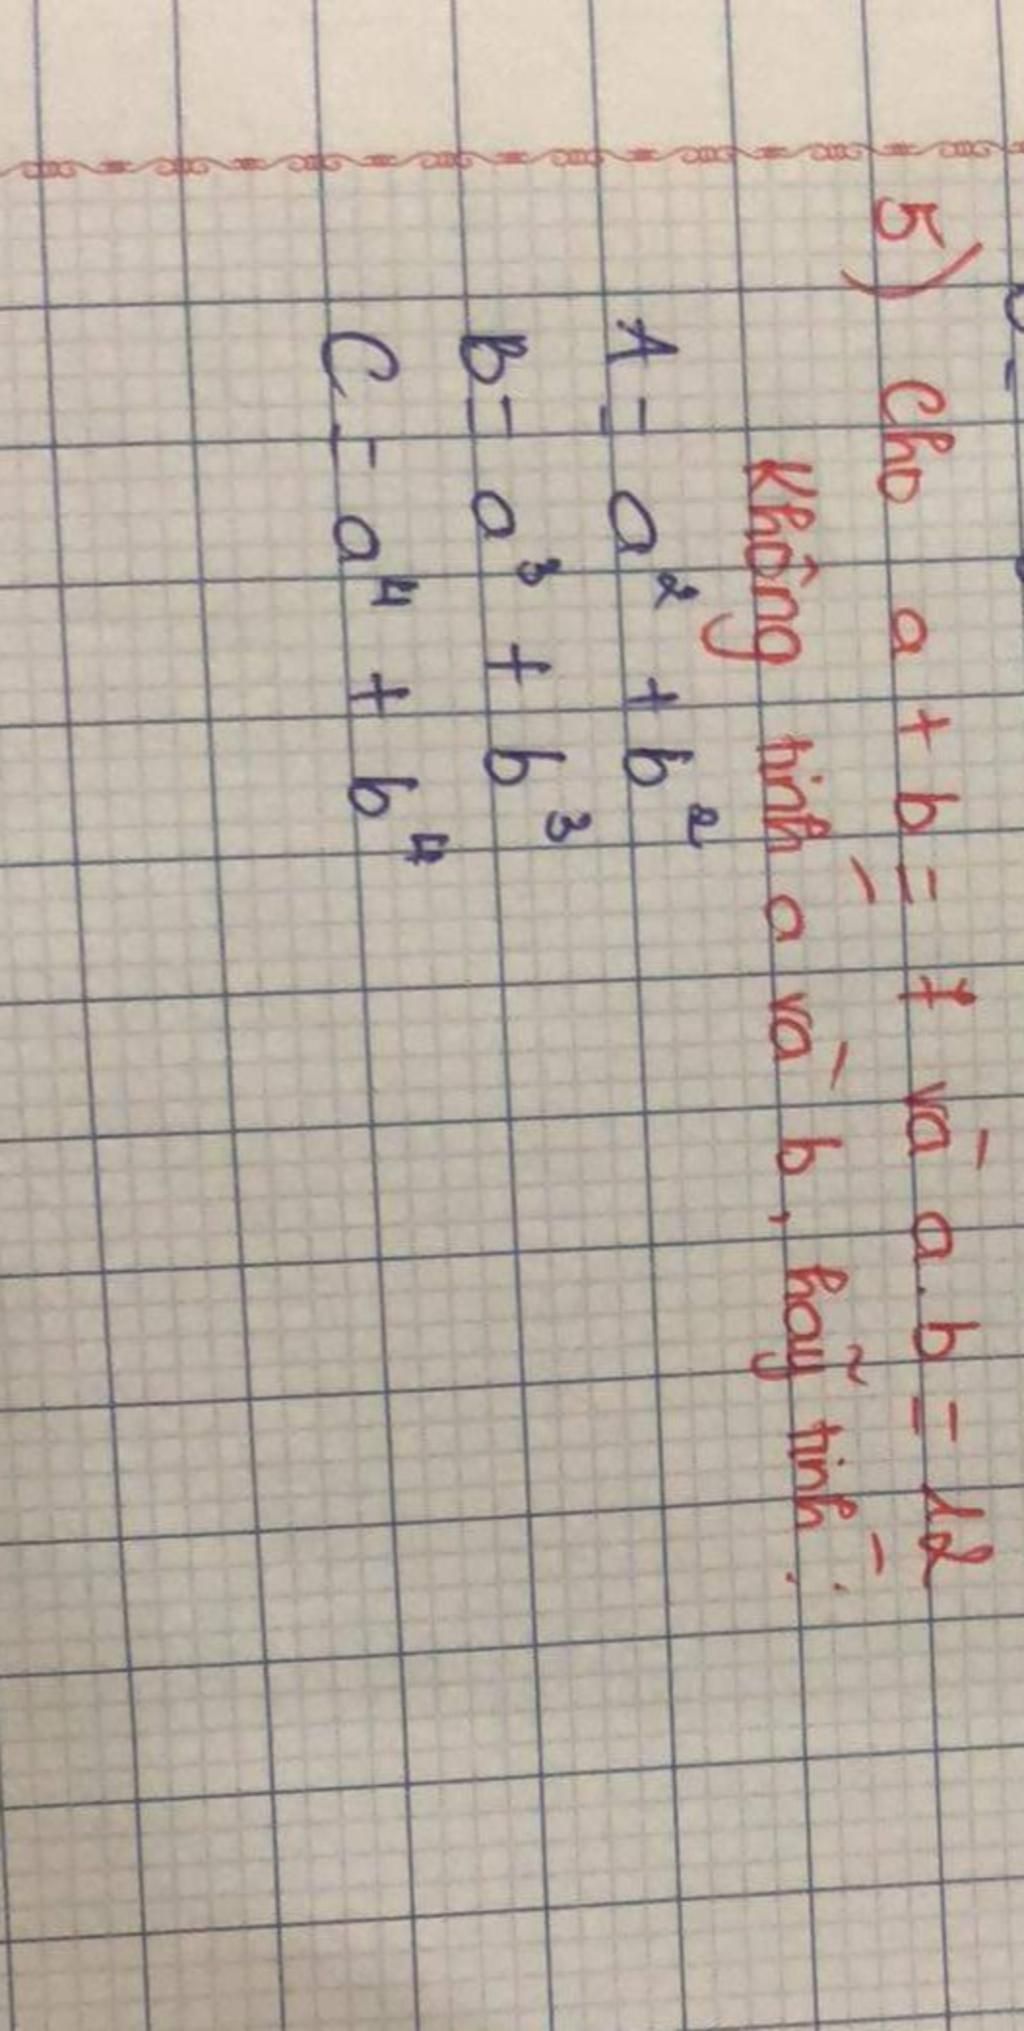 5) Cho a + b = 7 và a.b = 12
Không tính a và b, hãy tính :
A = a² + b²
B = a³ + b³
C = a⁴ + b⁴